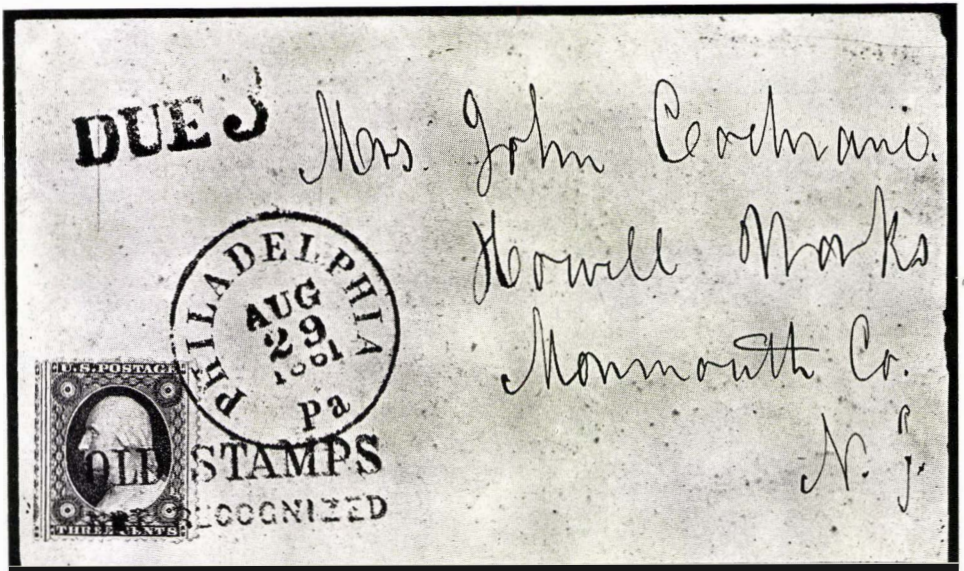 DUE 3
Mrs. John Cochrane.
Howell Works
Monmouth Co.
N. J.
PHILADELPHIA
AUG
29
1861
Pa
U.S. POSTAGE
THREE CENTS
OLD STAMPS
NOT RECOGNIZED